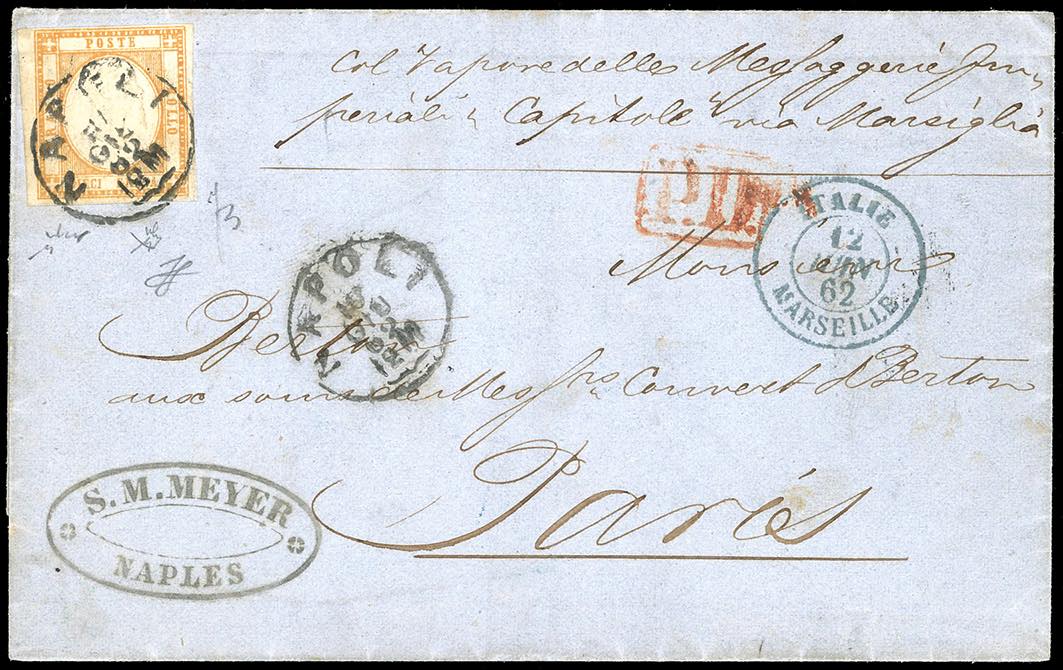 POSTE
BOLLO
CI
NAPOLI
GIU 62
12 M
col Vapore delle Messaggerie Im-
periali "Capitole" via Marsiglia
P.D.
ITALIE
12
JUIN
62
MARSEILLE
Monsieur
NAPOLI
Berton
aux soins de Mess.rs Convert & Berton
Parés
S. M. MEYER
NAPLES